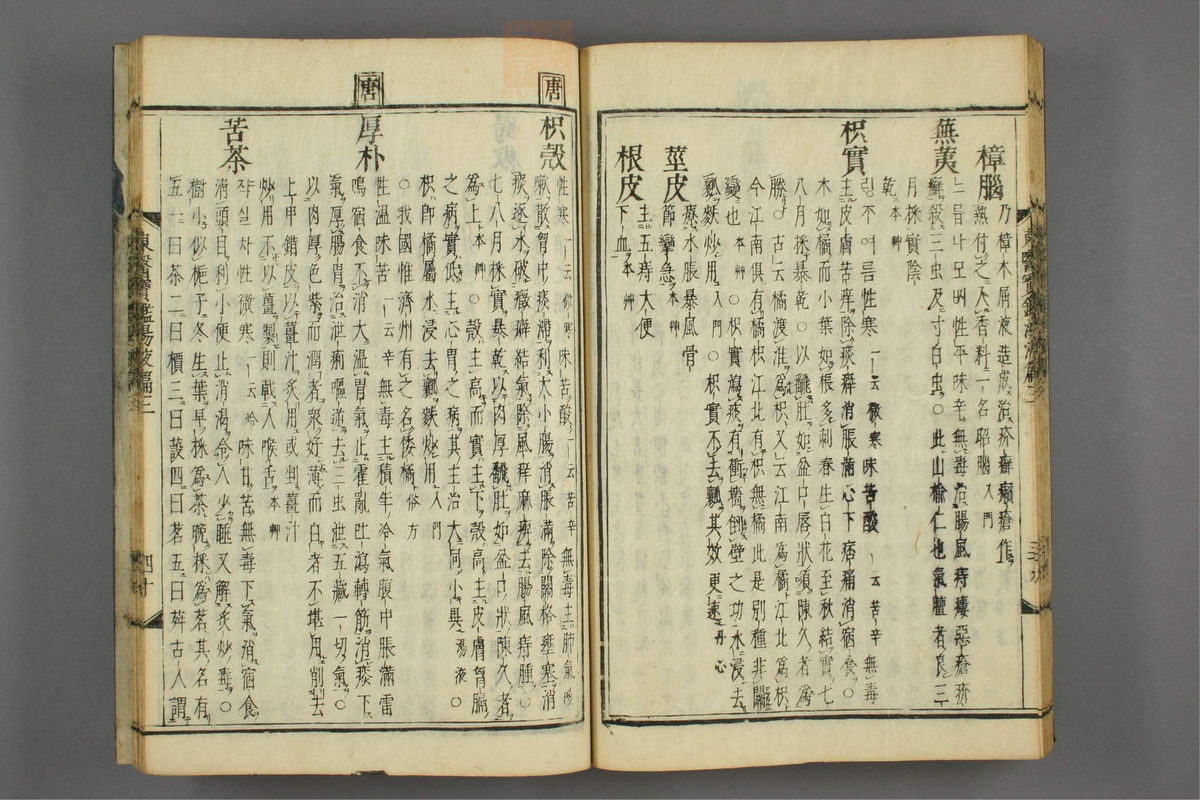 樟腦
乃樟木屑液造成治疥癬癩瘡作
熱付之入香料一名昭腦入門
蕪荑
느릅나모삐性平味辛無毒治腸風痔瘻惡瘡疥
癬殺三虫及寸白虫○此山楡仁也氣羶者良三
月採實陰
乾本艸
枳實
팅不여름性寒一云微寒味苦酸一云苦辛無毒
主皮膚苦痒除痰癖消脹滿心下痞痛消宿食○
木如橘而小葉如棖多刺春生白花至秋結實七
八月採暴乾○以飜肚如盆口唇狀須陳久者爲
勝○古云橘渡淮爲枳又云江南爲橘江北爲枳
今江南俱有橘枳江北有枳無橘此是別種非關
變也本艸○枳實瀉痰有衝墻倒壁之功水浸去
瓤麩炒用入門○枳實不去瓤其效更速丹心
莖皮
療水脹暴風骨
節攣急本艸
根皮
主五痔大便
下血本艸
唐
枳殼
性寒一云微寒味苦酸一云苦辛無毒主肺氣咳
嗽散胷中痰滯利大小腸消脹滿除關格壅塞消
痰逐水破癥癖結氣除風痒麻痺去腸風痔腫○
七八月採實暴乾以肉厚飜肚如盆口狀陳久者
爲上本艸○殼主高而實主下殼高主皮膚胷膈
之病實低主心胃之病其主治大同小異湯液○
枳卽橘屬水浸去瓤麩炒用入門
○我國惟濟州有之名倭橘俗方
唐
厚朴
性溫味苦一云辛無毒主積年冷氣腹中脹滿雷
鳴宿食不消大溫胃氣止霍亂吐瀉轉筋消痰下
氣厚腸胃治泄痢嘔逆去三虫泄五藏一切氣○
以肉厚色紫而潤者衆好薄而白者不堪用削去
上甲錯皮以薑汁炙用或剉薑汁
炒用不以薑製則戟人喉舌本艸
苦茶
쟉설차性微寒一云冷味甘苦無毒下氣消宿食
淸頭目利小便止消渴令人少睡又解炙炒毒○
樹小似梔子冬生葉早採爲茶晩採爲茗其名有
五一曰茶二曰檟三曰蔎四曰茗五曰荈古人謂
東醫寶鑑湯液篇三
四十